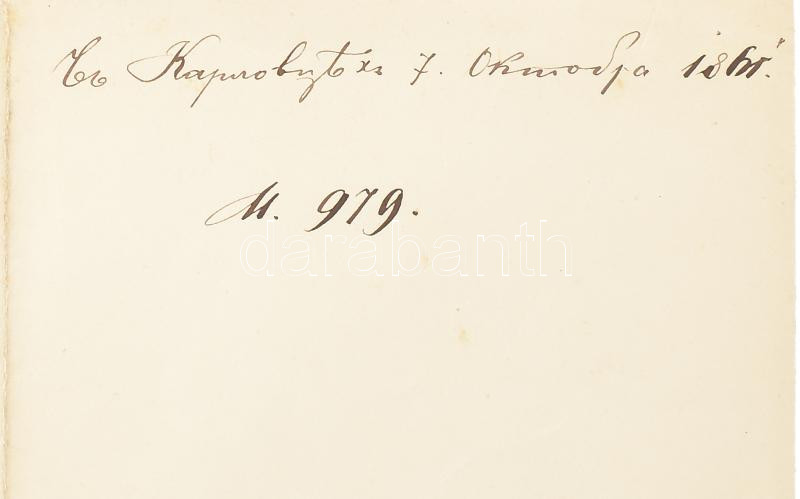 Въ Карловцѣхъ 7. Октобра
М. 979.
darabanth